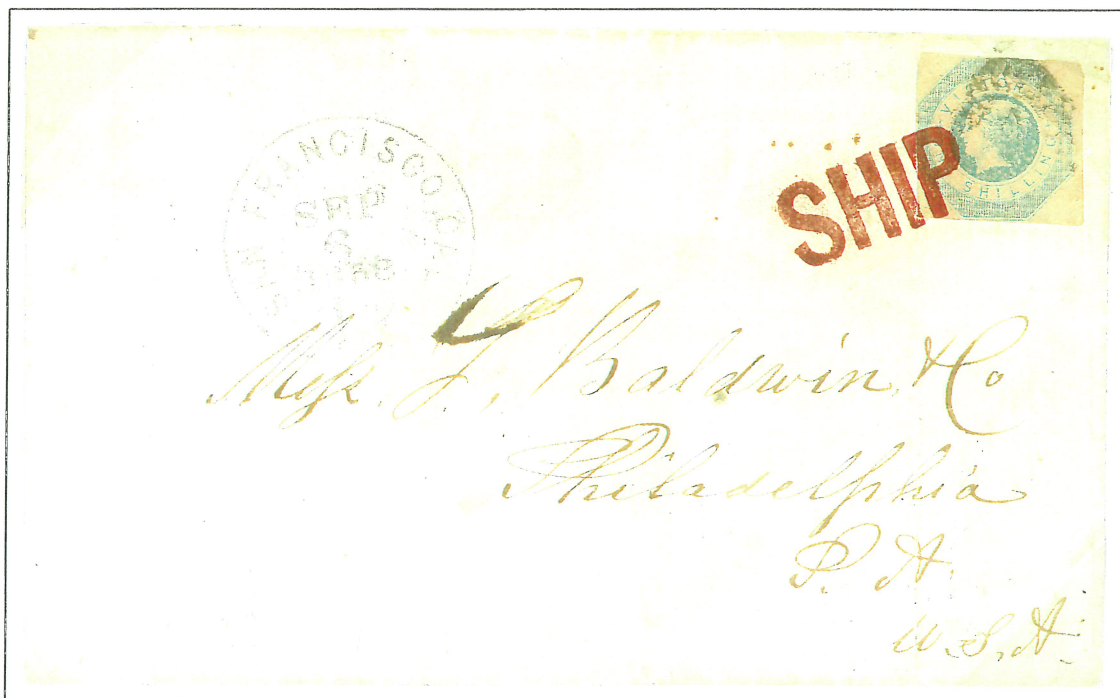 SAN FRANCISCO, CA.
SEP
6
VICTORIA
SHILLING
SHIP
Mess. L. Baldwin & Co
Philadelphia
P. A.
U. S. A.